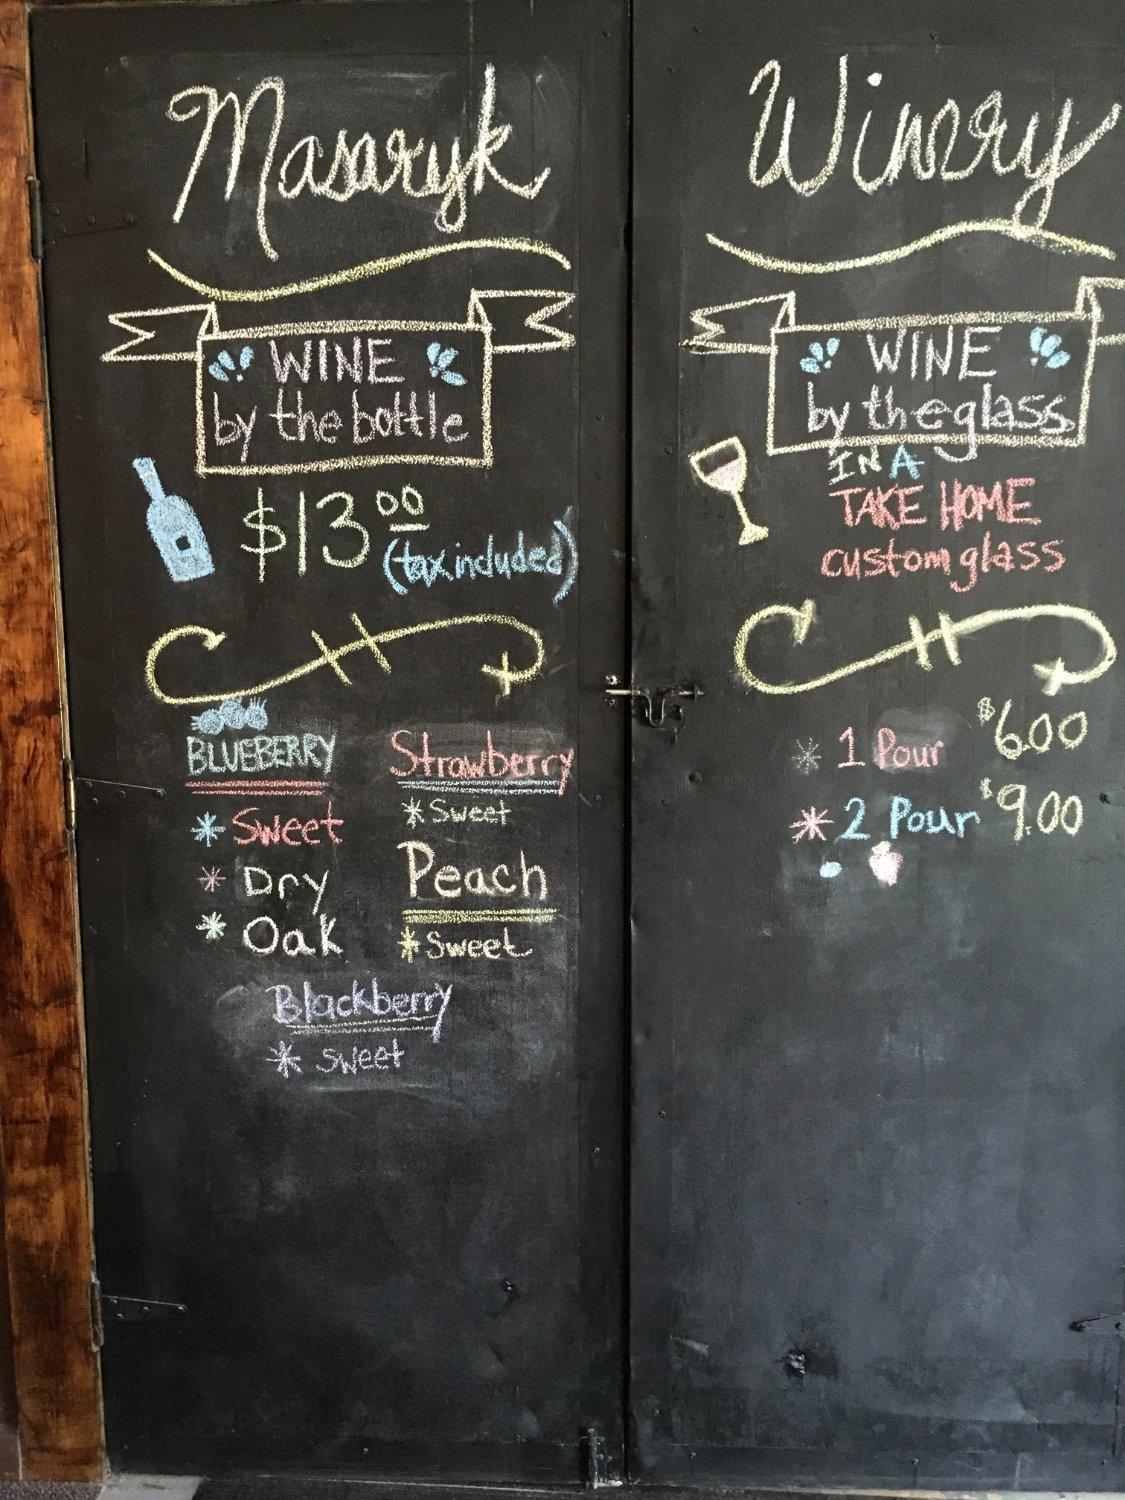 Masaryk
WINE
by the bottle
$13.00
(tax included)
BLUEBERRY
* Sweet
* Dry
* Oak
Strawberry
* Sweet
Peach
* Sweet
Blackberry
* sweet
Winery
WINE
by the glass
IN A
TAKE HOME
custom glass
* 1 Pour $6.00
* 2 Pour $9.00